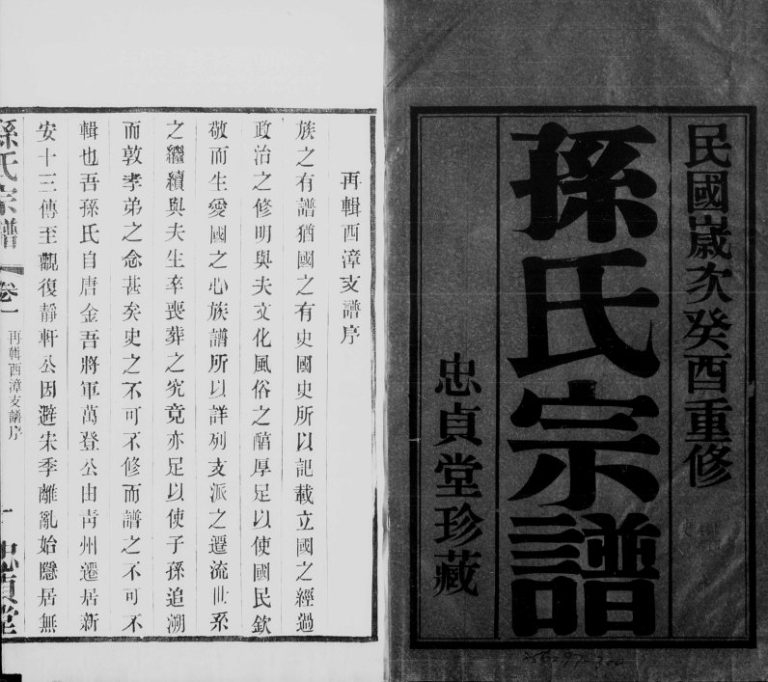 民國歲次癸酉重修
孫氏宗譜
忠貞堂珍藏
再輯西漳支譜序
族之有譜猶國之有史國史所以記載立國之經過
政治之修明與夫文化風俗之醕厚足以使國民欽
敬而生愛國之心族譜所以詳列支派之遷流世系
之繼續與夫生卒喪葬之究竟亦足以使子孫追溯
而敦孝弟之念甚矣史之不可不修而譜之不可不
輯也吾孫氏自唐金吾將軍萬登公由青州遷居新
安十三傳至觀復靜軒公因避宋季離亂始隱居無
孫氏宗譜 卷一 再輯西漳支譜序 一 忠貞堂